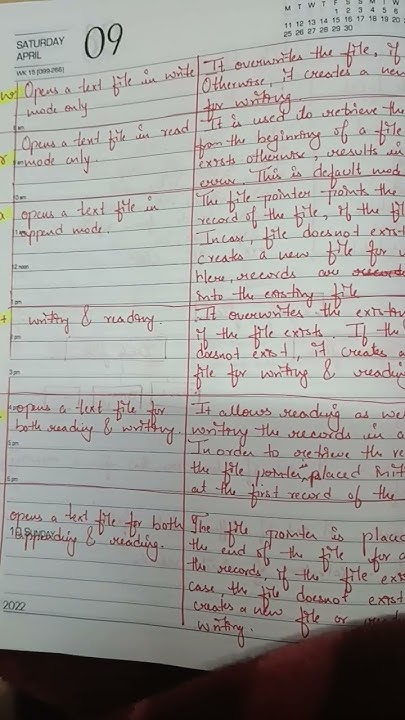 M T W T F S S M T W
1 2 3 4 5 6
11 12 13 14 15 16 17 18 19 20
25 26 27 28 29 30
SATURDAY
APRIL
09
WK 15 (099-266)
w Opens a text file in write
mode only
It overwrites the file, if
Otherwise, it creates a new
for writing.
r Opens a text file in read
mode only.
It is used to retrieve the
from the beginning of a file
exists otherwise, results in
error. This is default mod
a opens a text file in
append mode.
The file pointer points the
record of the file, if the fil
Incase, file doesnot exist
creates a new file for
Here, records are
into the existing file
12 noon
1 pm
+ writing & reading.
It overwrites the existin
if the file exists If the
doesnot exist, it creates a
file for writing & reading
3 pm
opens a text file for
both reading & writing.
It allows reading as we
writing the records in a
In order to retrieve the re
the file pointer placed init
at the first record of the
5 pm
6 pm
opens a text file for both
appending & reading.
The file pointer is place
the end of the file for a
the records, if the file exis
case, the file doesnot exist
creates a new file or
writing.
10 SUNDAY
2022